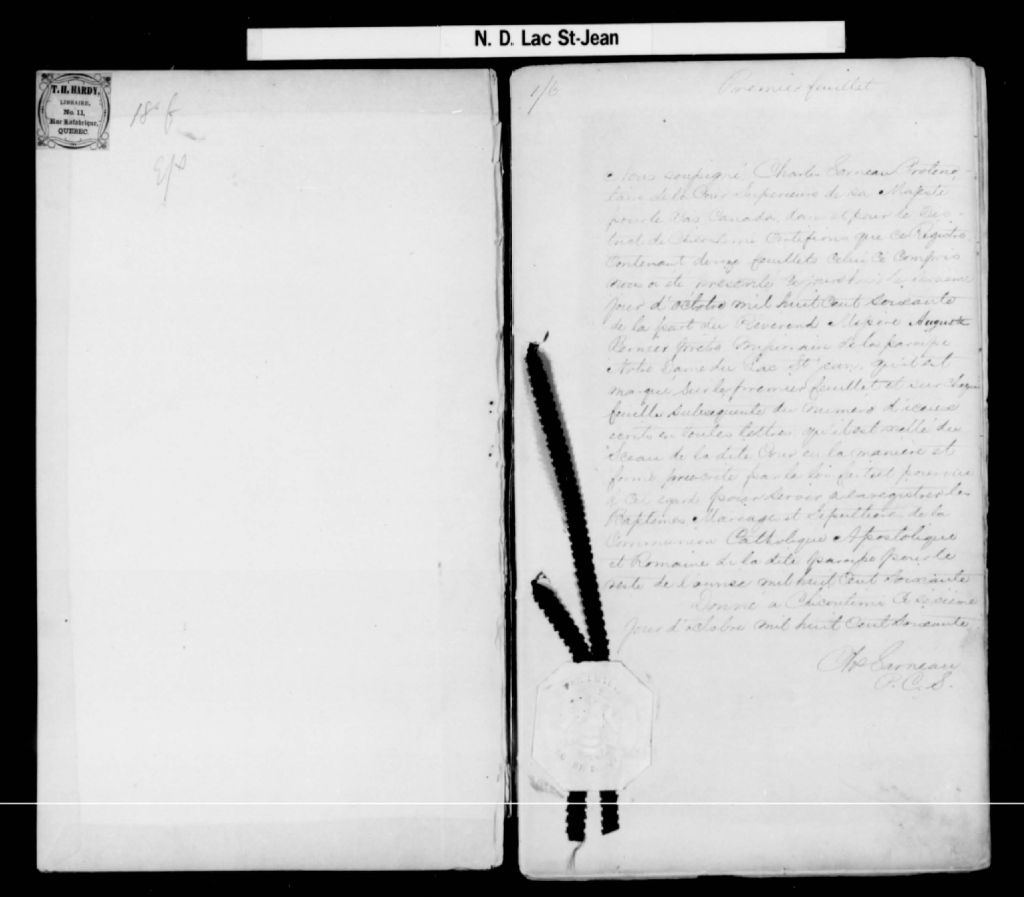 N. D. Lac St-Jean
T. H. HARDY,
LIBRAIRE,
No. 11,
Rue Lafabrique,
QUEBEC.
Premier feuillet
Nous soussigné, Charles Garneau Protono-
taire de la Cour Superieure de sa Majesté
pour le Bas Canada, dans et pour le Dis-
trict de Chicoutimi Certifions que ce Régistre
Contenant feuillets celui ci compris
nous a été présenté ce jourd'hui le
jour d'octobre mil huit cent soixante
de la part du Réverend Auguste
Bernier Missionnaire de la paroisse
Notre Dame du Lac St Jean, qu'il est
marqué sur le premier feuillet et sur chaque
feuille subsequente du numero d'iceux
ecrits en toutes lettres qu'il est scellé du
Sceau de la dite Cour en la manière et
forme prescrite par la loi pourvue
à cet egard pour servir à enregistrer les
Baptêmes, Mariages et Sépultures de la
Communion Catholique Apostolique
et Romaine de la dite paroisse pour le
reste de l'année mil huit cent soixante
Donné à Chicoutimi ce sixième
jour d'octobre mil huit cent soixante
Chs Garneau
P. C. S.